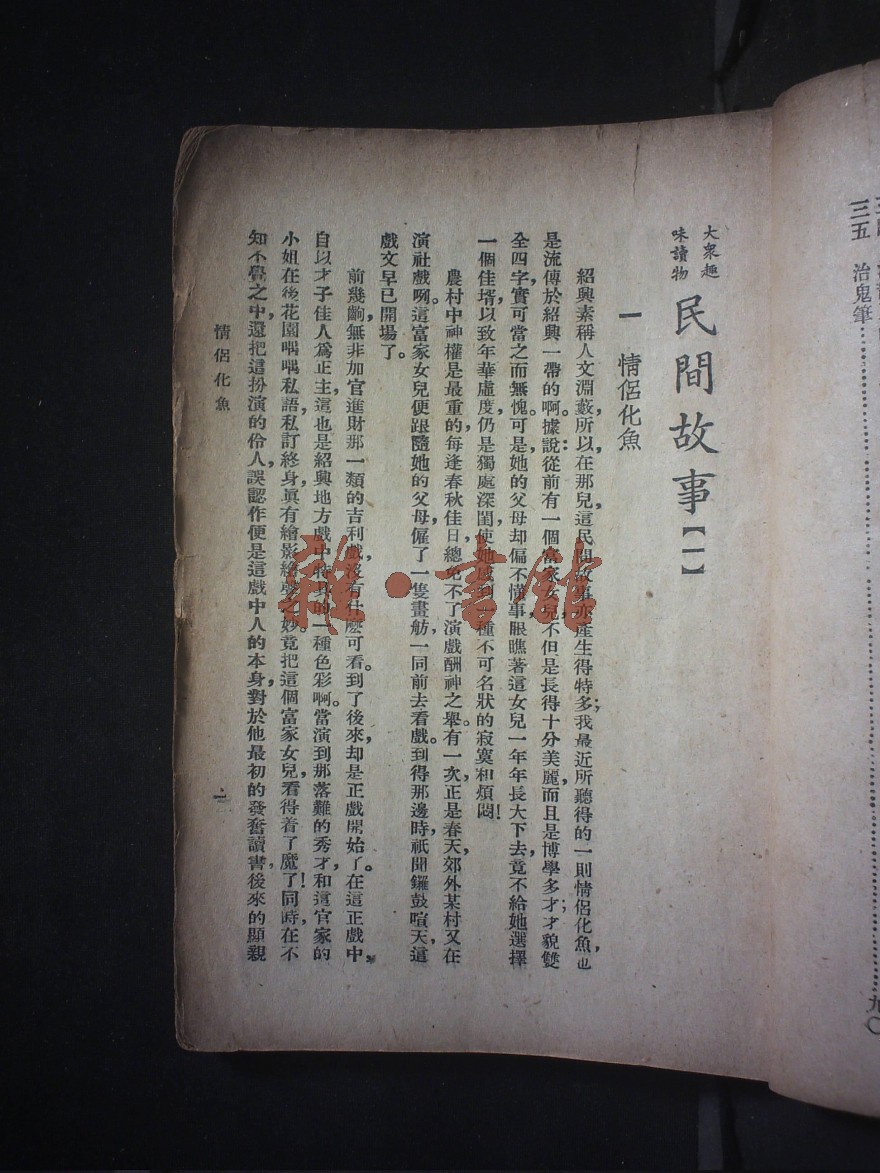 大衆趣
味讀物
民間故事【一】
一 情侶化魚
紹興素稱人文淵藪，所以在那兒，這民間故事亦產生得特多；我最近所聽得的一則情侶化魚，也
是流傳於紹興一帶的啊。據說：從前有一個富家女兒，不但是長得十分美麗，而且是博學多才；才貌雙
全四字，實可當之而無愧。可是，她的父母却偏不懂事，眼瞧著這女兒一年年長大下去，竟不給她選擇
一個佳壻，以致年華虛度，仍是獨處深閨，使她感到一種不可名狀的寂寞和煩悶！
農村中神權是最重的，每逢春秋佳日，總免不了演戲酬神之舉。有一次，正是春天，郊外某村又在
演社戲啊。這富家女兒便跟隨她的父母，僱了一隻畫舫，一同前去看戲。到得那邊時，祇聞鑼鼓喧天，這
戲文早已開場了。
前幾齣，無非加官進財那一類的吉利戲，沒有什麽可看。到了後來，却是正戲開始了。在這正戲中，
自以才子佳人爲正主，這也是紹興地方戲中特具的一種色彩啊。當演到那落難的秀才，和這官家的
小姐在後花園喁喁私語，私訂終身，眞有繪影繪聲之妙。竟把這個富家女兒，看得着了魔了！同時，在不
知不覺之中，還把這扮演的伶人，誤認作便是這戲中人的本身，對於他最初的發奮讀書，後來的顯親
情侶化魚
一
三五 治鬼筆
九〇
雜·書館